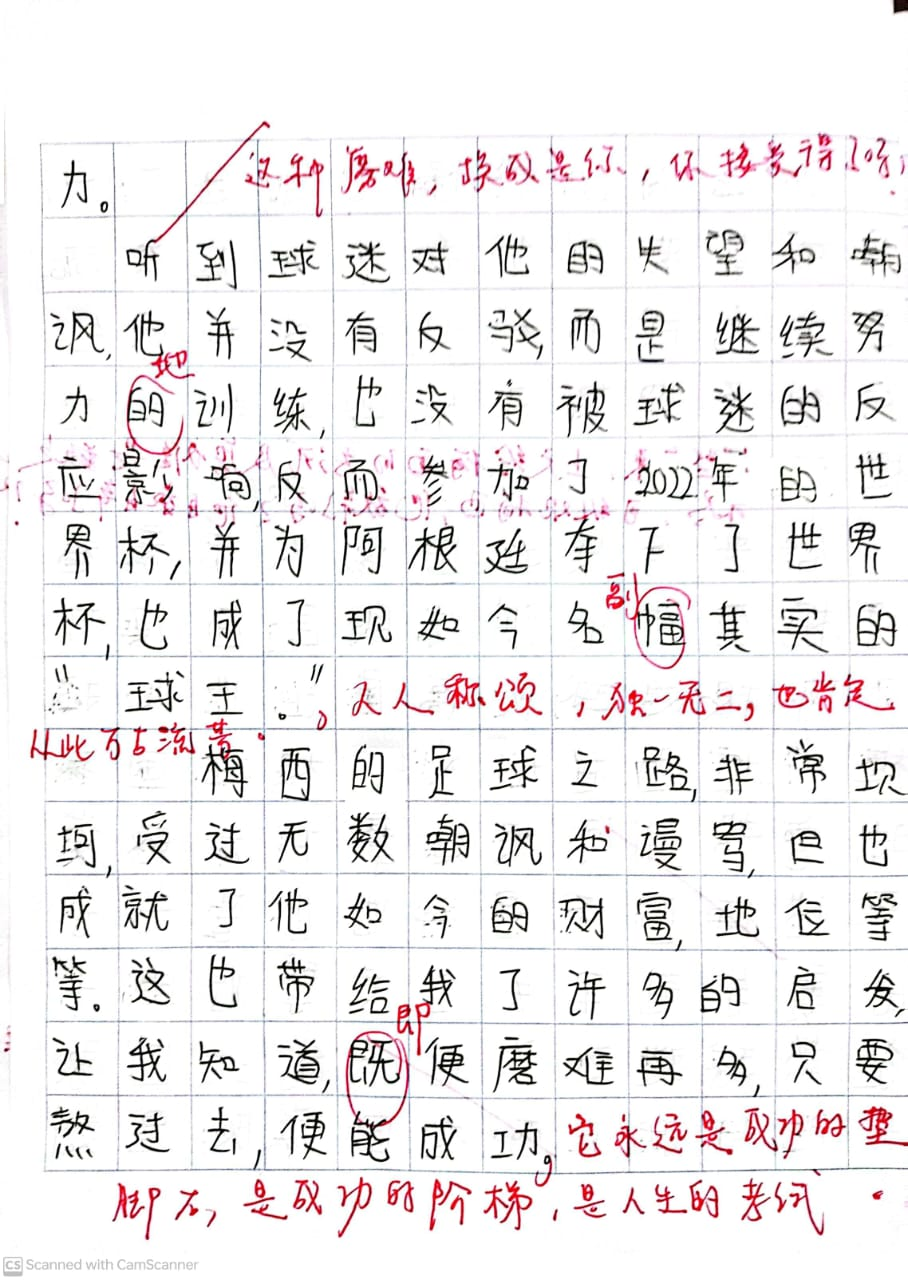 这种磨难，换成是你，你接受得了吗，
力。
听到球迷对他的失望和嘲
讽，他并没有反驳，而是继续努
地
力的训练，也没有被球迷的反
应影响，反而参加了2022年的世
界杯，并为阿根廷夺下了世界
副
杯，也成了现如今名幅其实的
“球王”。人人称颂，独一无二，也肯定
从此万古流芳。
梅西的足球之路，非常坎
坷，受过无数嘲讽和谩骂，但也
成就了他如今的财富，地位等
等。这也带给我了许多的启发，
即
让我知道，既便磨难再多，只要
熬过去，便能成功。它永远是成功的垫
脚石，是成功的阶梯，是人生的考试.
CS Scanned with CamScanner